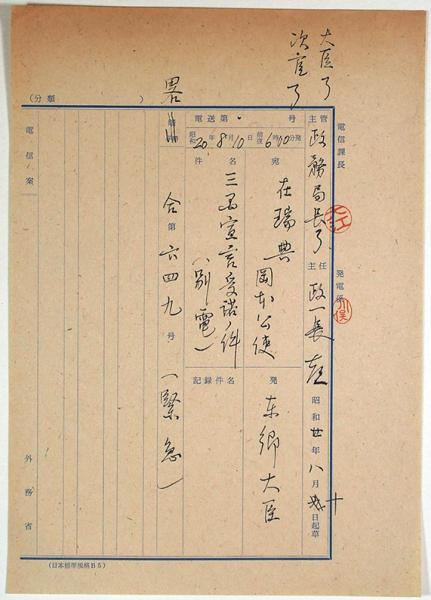 大臣了
次官了
電信課長
発電係
主管 政務局長了
主任 政一長
昭和廿年八月十日起草
電送第 号
昭和20年8月10日 前後6時00分発
宛 在瑞典 岡本公使
発 東郷大臣
件名 三国宣言受諾ノ件
(別電一)
記録件名
暗
合第六四九号(緊急)
(分類 )
電信案
外務省
(日本標準規格B5)